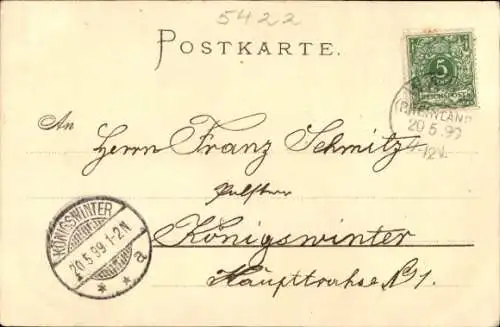 5422
POSTKARTE.
5
REICHSPOST
(RHEINLAND)
20 5. 99
-12V.
An
Herrn Franz Schmitz
Königswinter
Hauptstrasse N 1.
KÖNIGSWINTER
20.5.99.1-2N
* * a